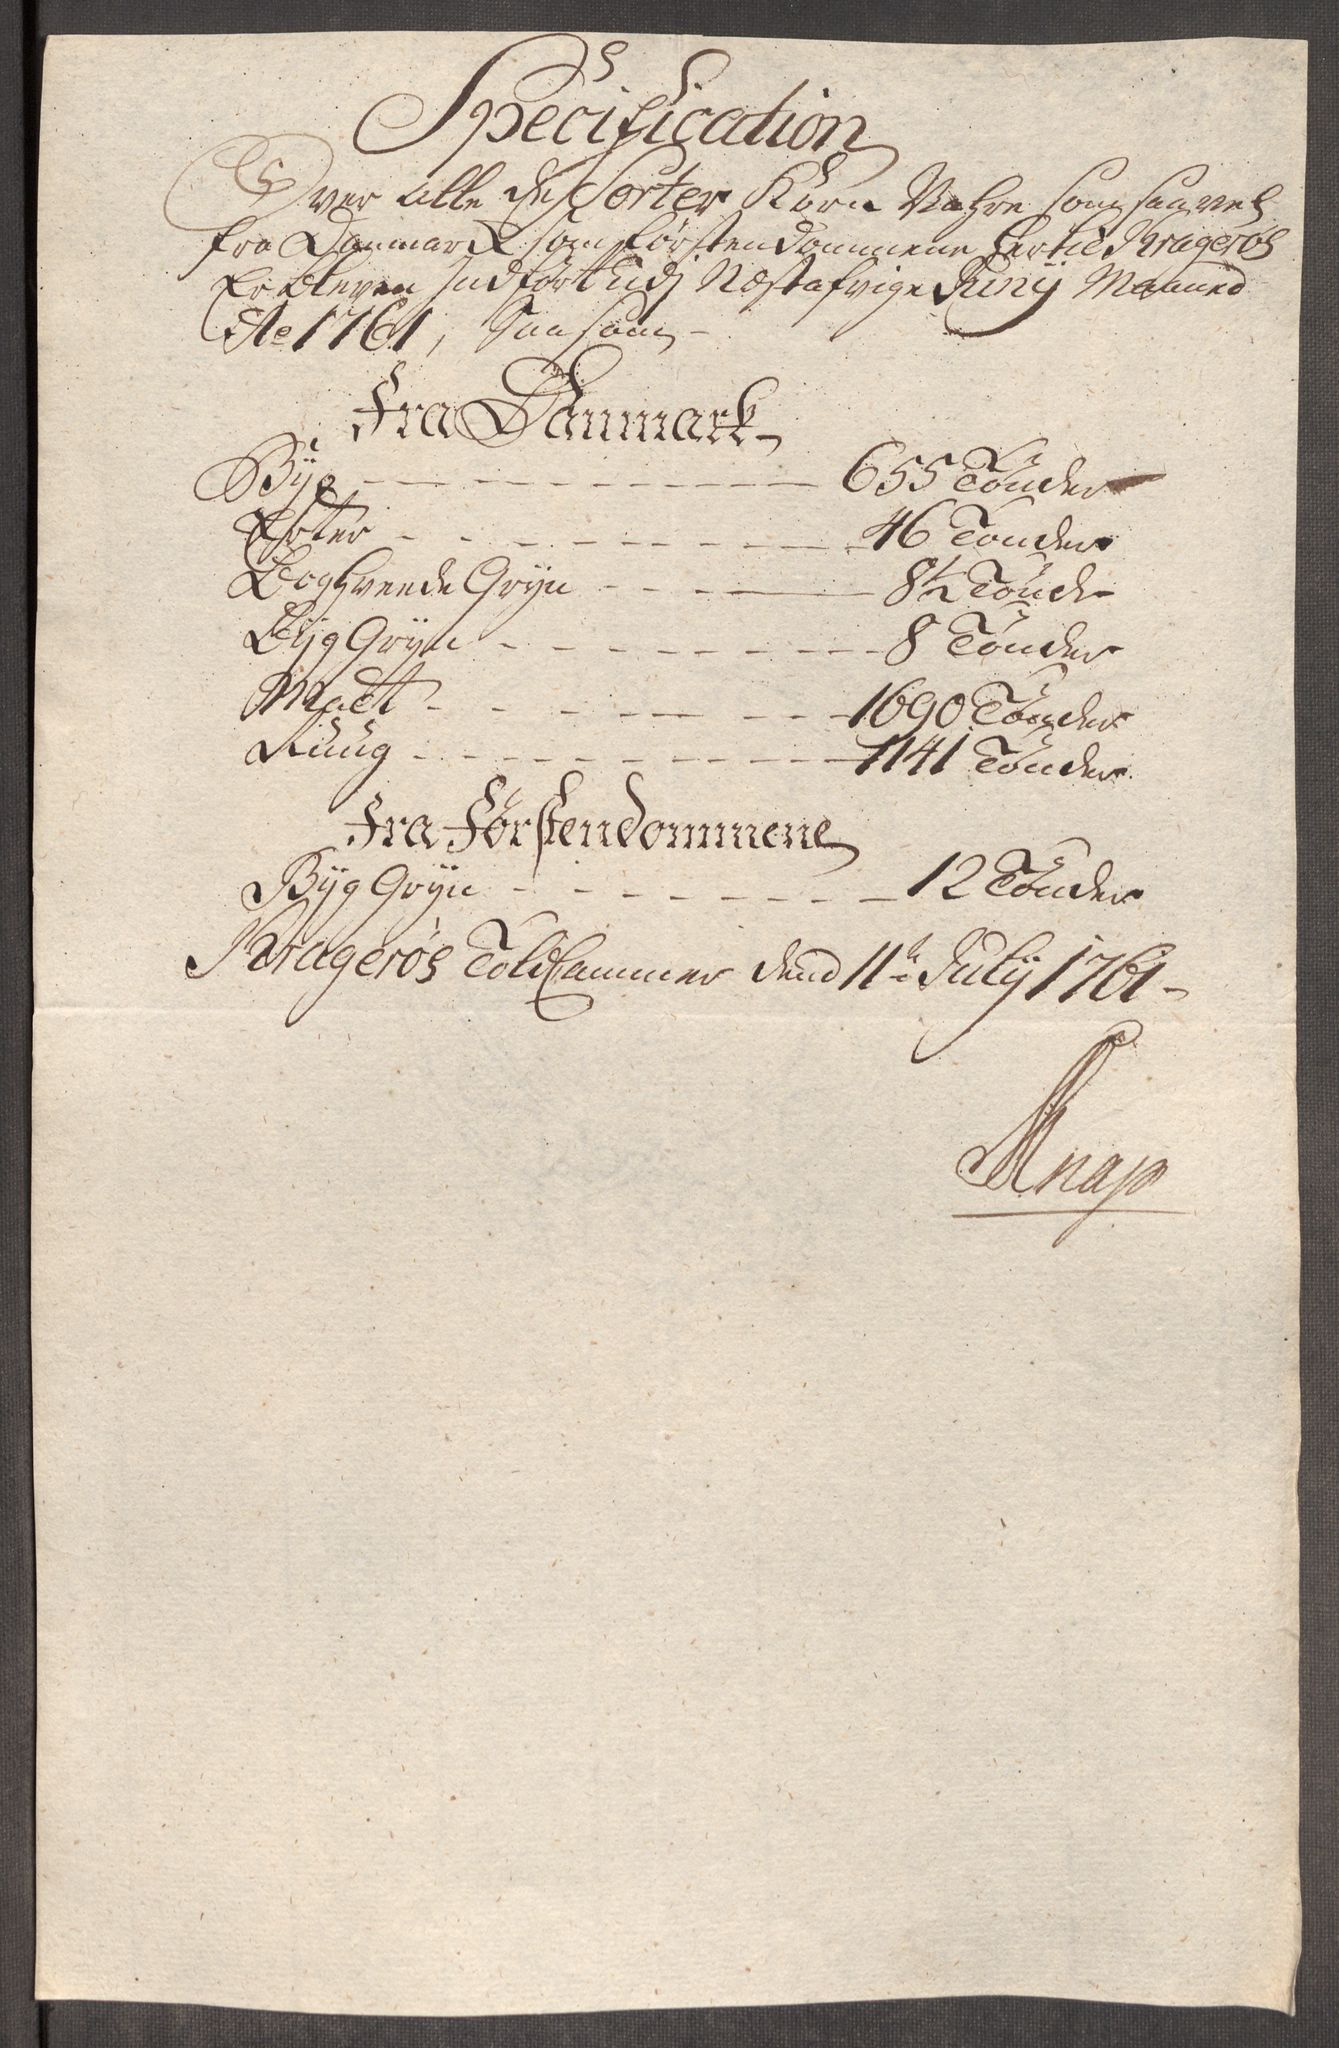 Specification
Over alle de Sorter Korn Vahre som saavel
fra Danmark som Førstendommene hertil Kragerøe
Er bleven Indført udj Næstafvigte Junij Maaned
Ao 1761, Saasom
Fra Danmark
Byg 655 Tønder
Erter 46 Tønder
Boghveede Gryn 8½ Tønde
Byg Gryn 8 Tønder
Malt 1690 Tønder
Ruug 1141 Tønder
Fra Førstendommene
Byg Gryn 12 Tønder
Kragerøe Told Cammer dend 11te July 1761
Knap